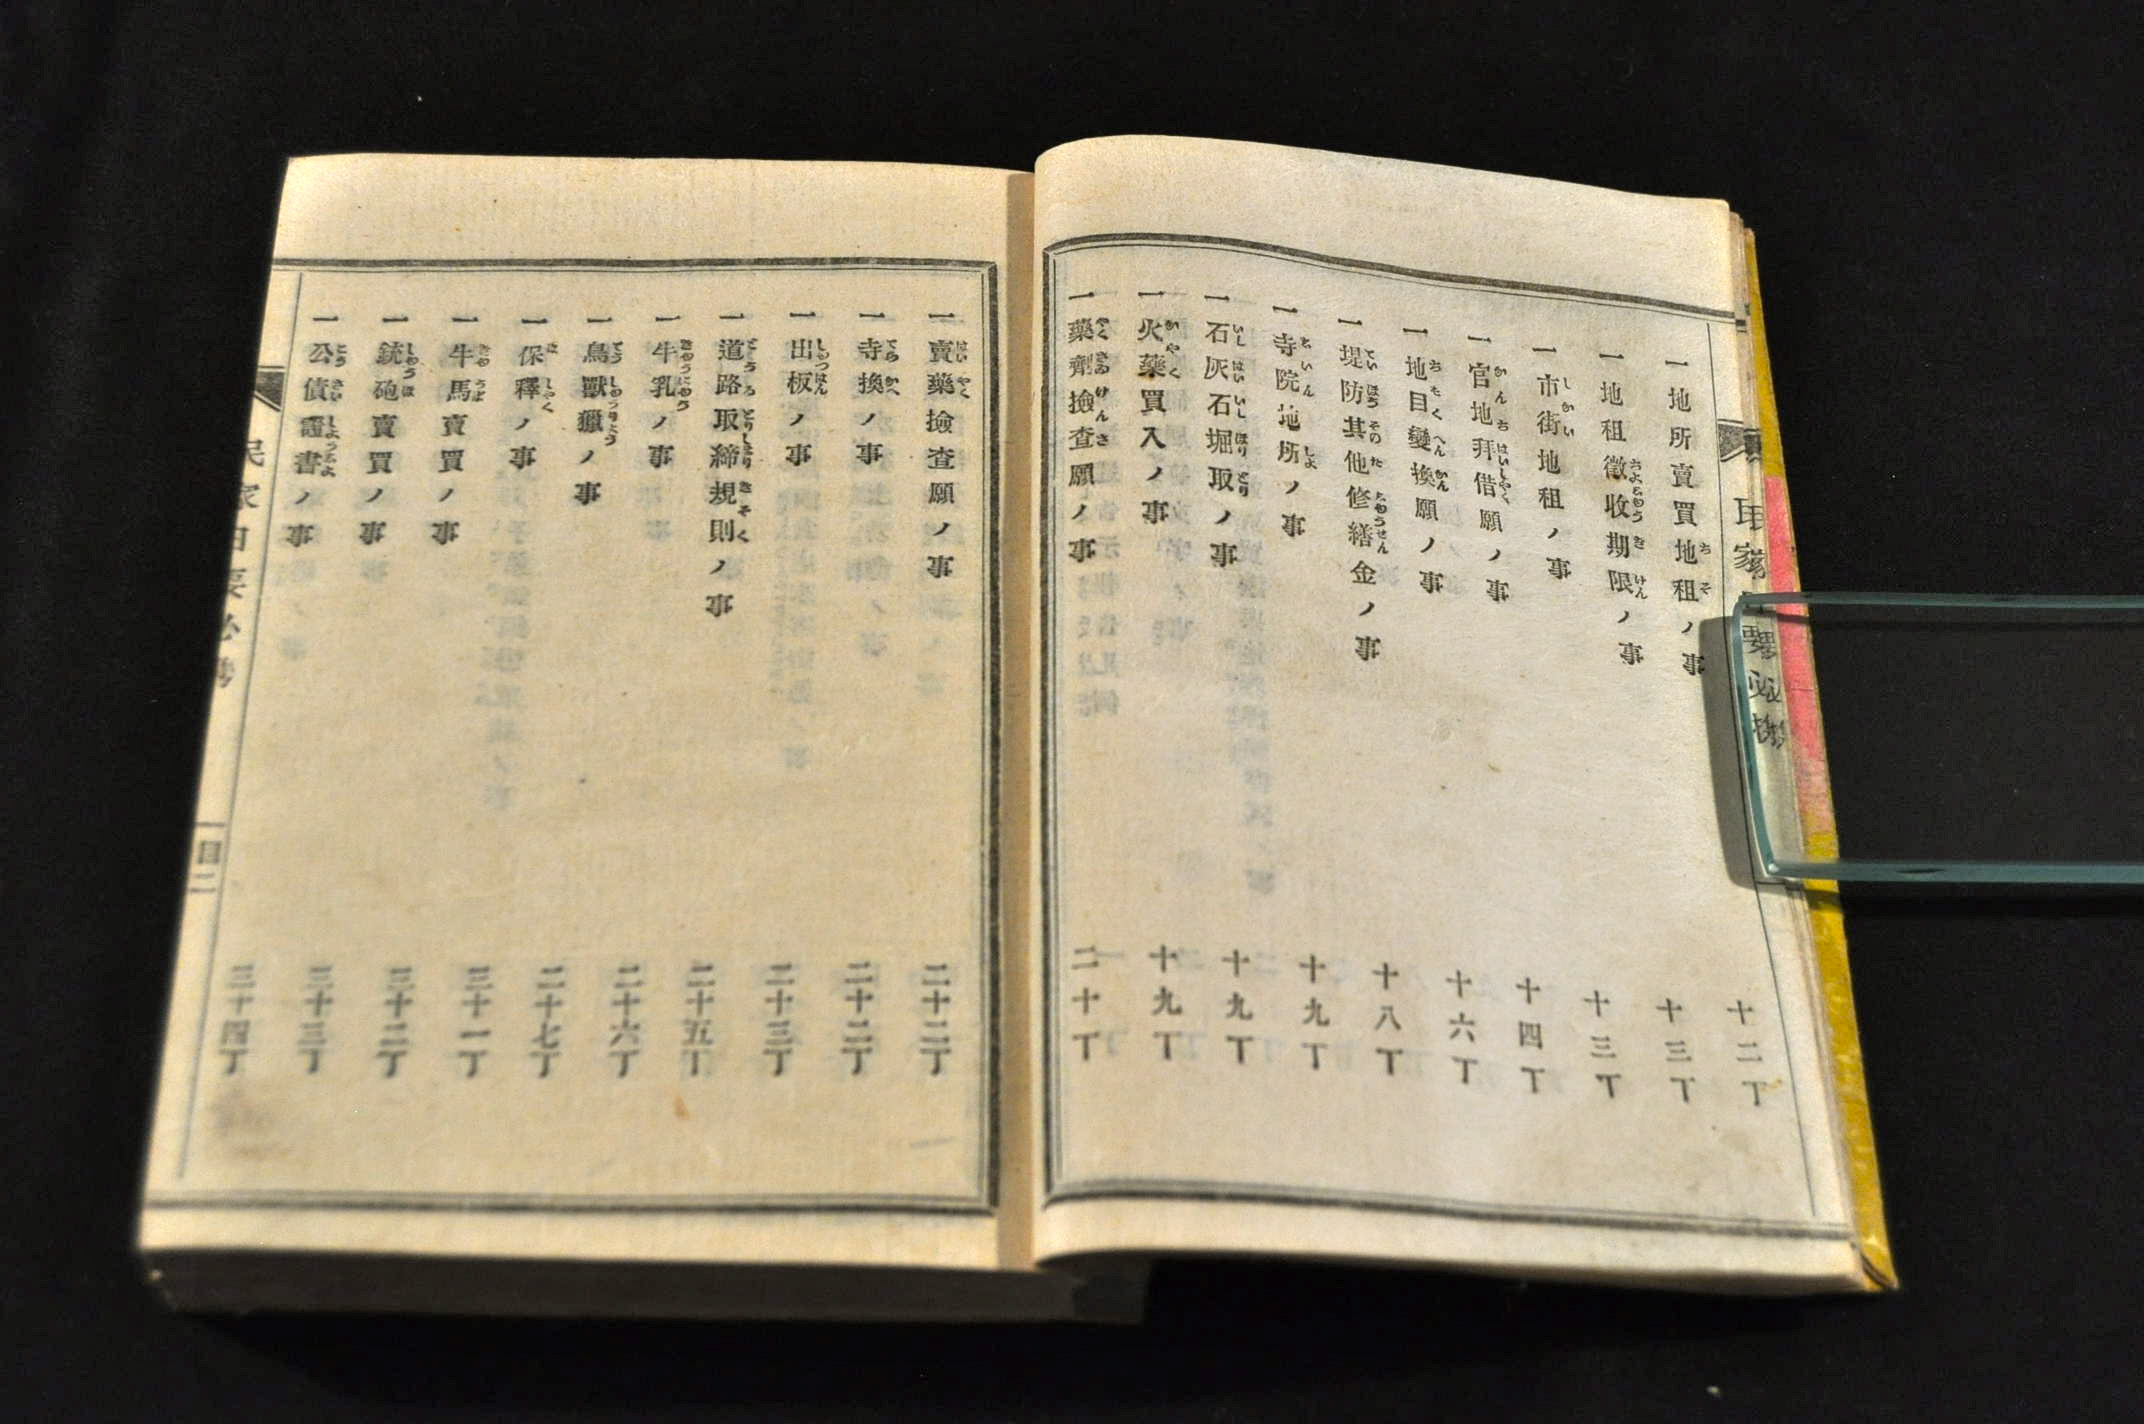 一地所賣買地租ノ事 十二丁
一地租徵收期限ノ事 十三丁
一市街地租ノ事 十三丁
一官地拜借願ノ事 十四丁
一地目變換願ノ事 十六丁
一堤防其他修繕金ノ事 十八丁
一寺院地所ノ事 十九丁
一石灰石堀取ノ事 十九丁
一火藥買入ノ事 十九丁
一藥劑撿查願ノ事 二十丁
一賣藥撿查願ノ事 二十二丁
一寺換ノ事 二十二丁
一出板ノ事 二十三丁
一道路取締規則ノ事 二十五丁
一牛乳ノ事 二十六丁
一鳥獸獵ノ事 二十七丁
一保釋ノ事 三十一丁
一牛馬賣買ノ事 三十二丁
一銃砲賣買ノ事 三十三丁
一公債證書ノ事 三十四丁
目二